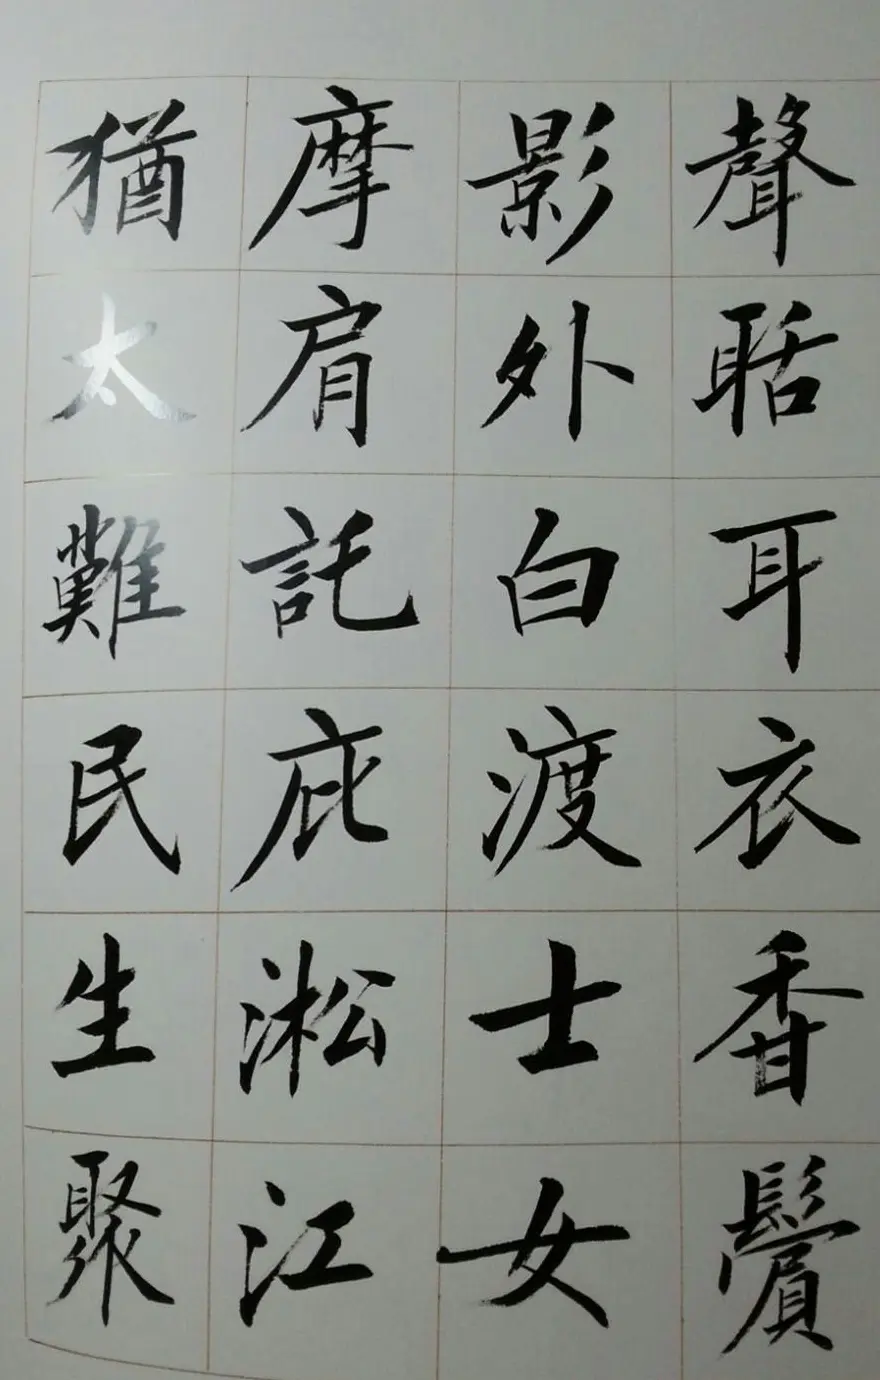 聲聒耳衣香鬢
影外白渡士女
摩肩託庇淞江
猶太難民生聚